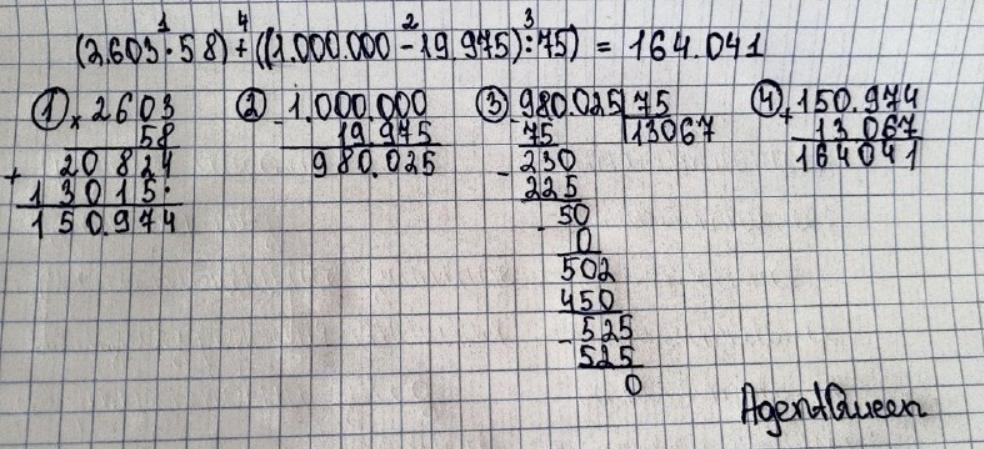 1 4 2 3
(2.603·58)+((1.000.000-19.975):75) = 164.041
① × 2603 ② - 1.000.000 ③ - 980.025 | 75 ④ + 150.974
58 19 975 75 13067 13 067
+ 20 824 980.025 - 230 164041
13015· 225
150.974 - 50
0
502
450
- 525
525
0
AgentQueen